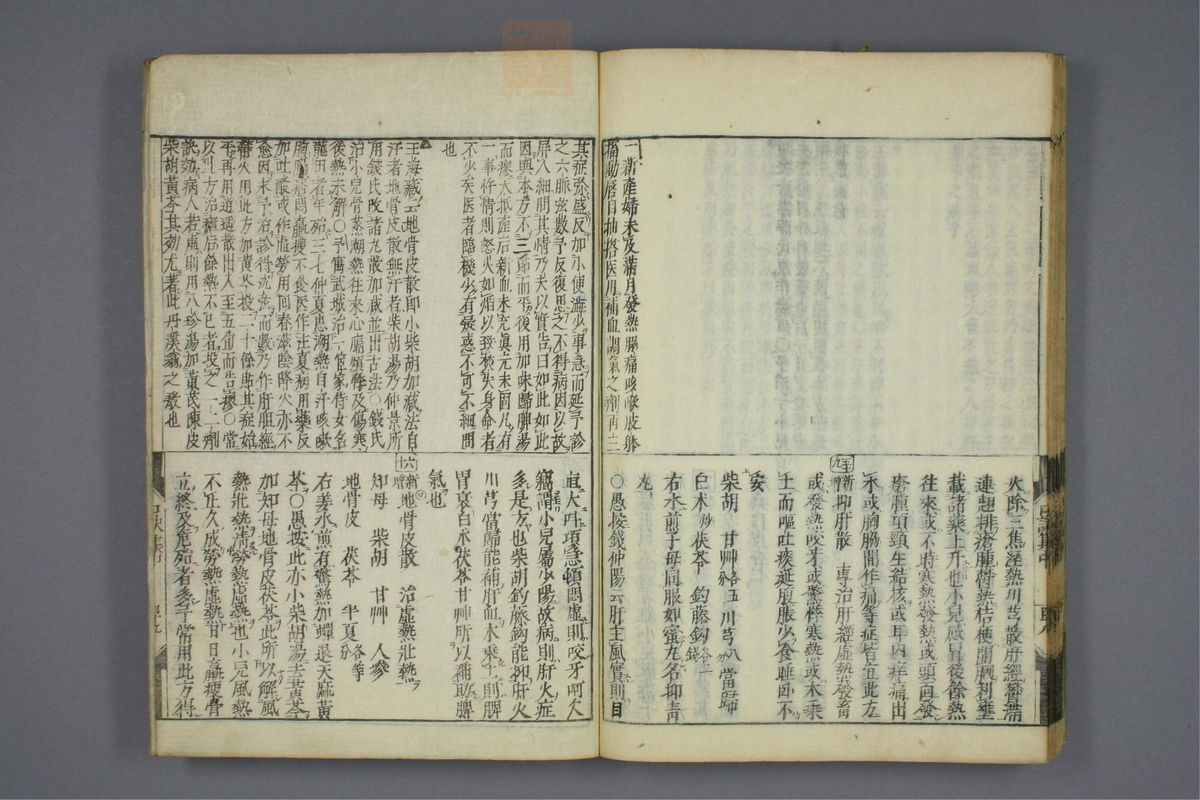 一新產婦未及滿月發熱腸痛咳嗽皮
搐動唇目抽搭医用補血調氣之劑再二
火除三焦淫熱川芎散肝經鬱滯
連翹排瘡腫得熱桔梗開胸利壅
載諸藥上升也小兒感冒後餘熱
往來或不時寒熱發熱或頭面發
瘡腫項頸生結核或耳內痒痛出
水或胸腸間作痛等症皆宜此方
新增抑肝散 專治肝經虛熱發畜
或發熱咬牙或驚悸寒熱或木乘
土而嘔吐痰涎腹脹少食睡卧不
安
柴胡 甘艸各五分 川芎八 當歸
白术炒 茯苓 釣藤鈎各一錢
右水煎子母同服如蜜丸名抑青
丸
○愚按錢仲陽云肝主風實則目
其症弥盛反加小便澁少事急而延予診
之六脉弦數予反復思之不得病因以故
屏人細問其情乃夫以實告曰如此如此
因與本方不三而平後用加味歸脾湯
而瘳大抵產后新血未充真元未固凡有
一事忤情則怒火如焰以致喪身命者
不少矣医者臨機少有疑惑不可不細問
也
王海藏云地骨皮散即小柴胡加减法自
汗者地骨皮散無汗者柴胡湯乃仲景所
用錢氏改諸丸散加减並出古法○錢氏
治小兒骨蒸潮熱往來心膈煩悸及傷寒
後熱未解○予寓武城治一官家侍女名
龍田者年殆三七仲夏患潮熱自汗咳嗽
胸悶羸瘦不食医作注夏病用藥反
加吐酸或作虛勞用回春滋陰降火亦不
愈因來予治診得沈弦而數乃作肝胆經
火用此方加黄芩投二十餘貼其症始
平再用逍遥散出入至五旬而告瘳○當
以此方治瘧后餘熱不已者投之一二劑
訣効病人若虛則用八珍湯加黄芪陳皮
柴胡黄芩其効尤著此丹溪翁之教也
直大叫項急頓悶虛則咬牙呵欠
竊謂小兒屬少陽故病則肝火症
多是方也柴胡釣藤鈎能抑肝火
川芎當歸能補肝血木乘土則脾
胃衰白术茯苓甘艸所以補助脾
氣也
六十 新增地骨皮散 治虛熱壯熱
知母 柴胡 甘艸 人參
地骨皮 茯苓 半夏各等分
右姜水煎有驚熱加蟬退天麻黃
芩○愚按此亦小柴胡湯去黄芩
加知母地骨皮茯苓此所以解風
熱壯熱清勞熱虛熱也小兒風熱
不止久成勞熱虛熱甘日羸梗骨
立終及危殆者多予常用此方得